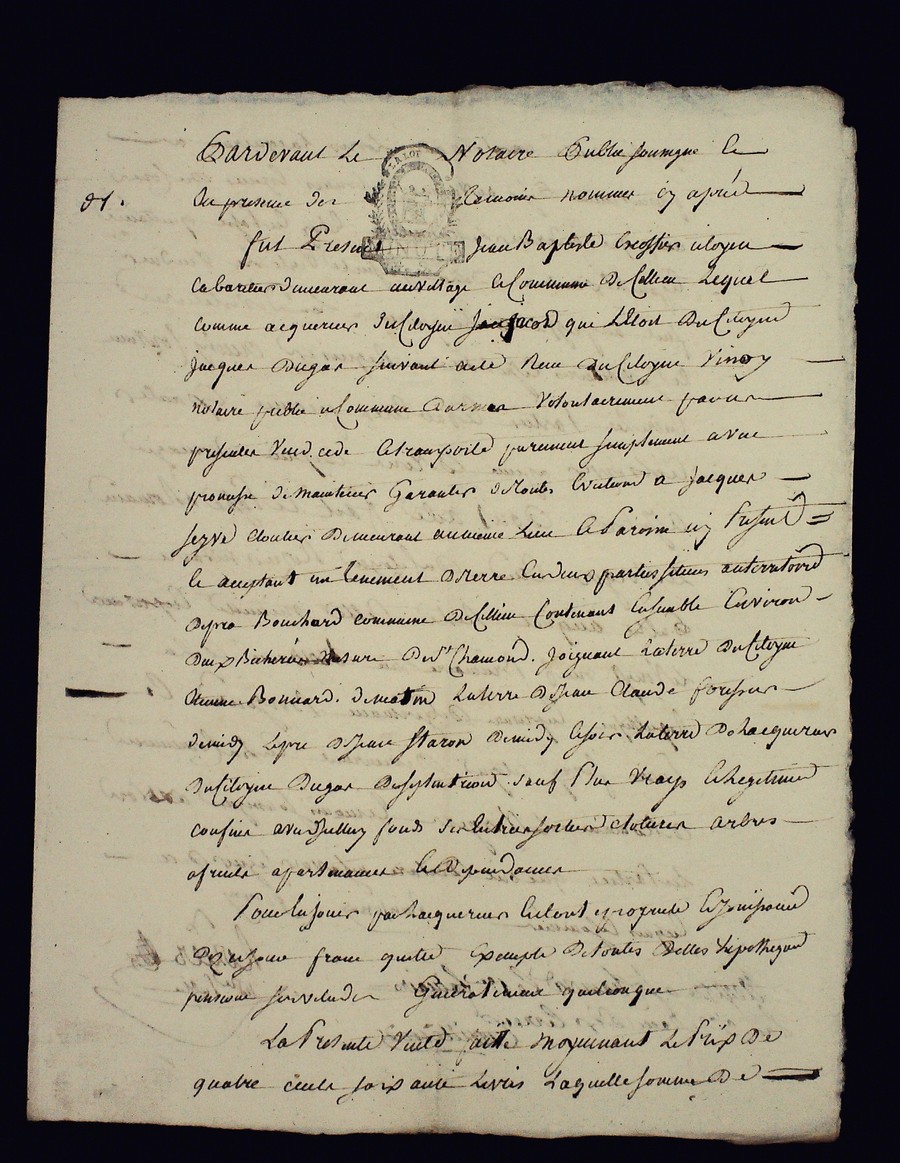 Pardevant Le Notaire Public soussigné Et
91.
En presence des temoins nommés cy après
LA LOI
MINUTE
fut Present Jean Baptiste Crossier citoyen
Cabaretier demeurant au village Et Commune De Cellieu Lequel
comme acquereur du Citoyen qui L'Etoit Du Citoyen
Jacques Dugas suivant acte Reçu Du Citoyen Vinoy
notaire public Commune Volontairement par ces
presentes Vend cede Et transporte purement simplement avec
promesse de maintenir Garantir de toutes Evictions a Jacques
seyve cloutier Demeurant au même Lieu Et Paroisse icy Present
Et acceptant un tenement De terre En deux parties situées au territoire
De pra Bouchard commune De Cellieu Contenant Ensemble Environ
Deux Bicherées mesure De St Chamond. Joignant La terre Du Citoyen
Etienne Bonnard. de matin La terre De Jean Claude
de midy Le pré De Jean Staron De midy Et soir La terre De Lacquereur
Du Citoyen Dugas De septentrion sauf Plus Vrays Et Legitimes
confins avec fonds ses Entrées sorties clotures arbres
apartenances Et Dependances
Pour En jouir par Lacquereur En toute proprieté Et Jouissance
Dez ce jour franc quitte Exempte De toutes Dettes hipotheques
pensions servitudes Generalement quelconques
La Presente Vente faitte moyennant Le Prix De
quatre cents soixante Livres Laquelle somme De